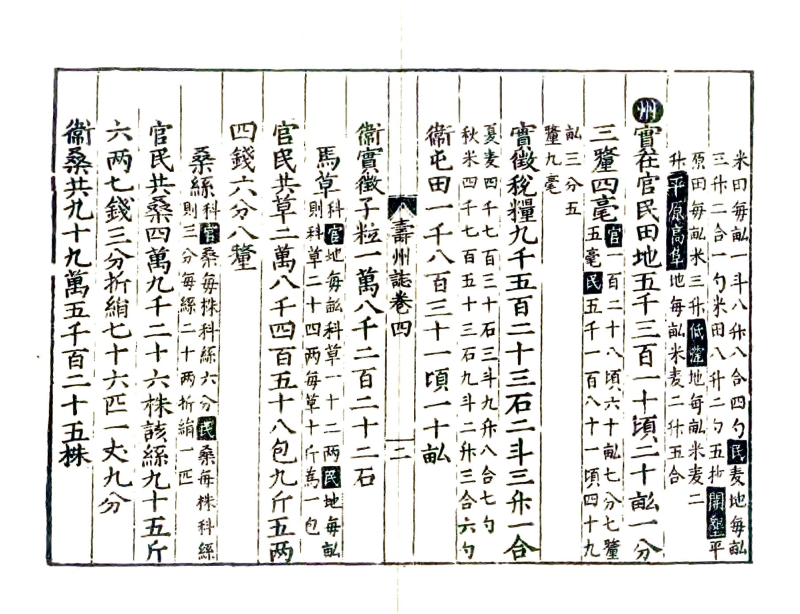 米田每畝一斗八升八合四勺民麦地每畝
三升二合一勺米田八升二勺五抄開墾平
原田每畝米三升低窪地每畝米麦二
升平原高阜地每畝米麦二升五合
州實在官民田地五千三百一十頃二十畝一分
三釐四毫官一百二十八頃六十畝七分七釐
五毫民五千一百八十一頃四十九
畝三分五
釐九毫
實徵稅糧九千五百二十三石二斗三升一合
夏麦四千七百三十石三斗九升八合七勺
秋米四千七百五十三石九斗二升三合六勺
衞屯田一千八百三十一頃一十畝
壽州誌卷四
二
衞實徵子粒一萬八千二百二十二石
馬草科官地每畝科草一十二两民地每畝
則科草二十四两每草十斤爲一包
官民共草二萬八千四百五十八包九斤五两
四錢六分八釐
桑絲科官桑每株科絲六分民桑每株科絲
則三分每絲二十两折絹一匹
官民共桑四萬九千二十六株該絲九十五斤
六两七錢三分折絹七十六匹一丈九分
衞桑共九十九萬五千百二十五株